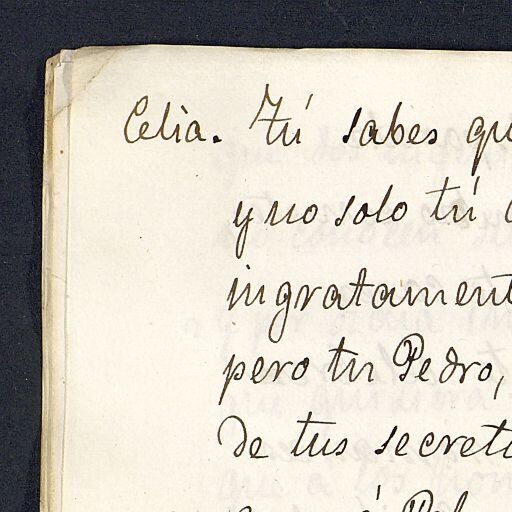 Celia. Tú sabes qu
y no solo tú
ingratament
pero tu Pedro,
de tus secret